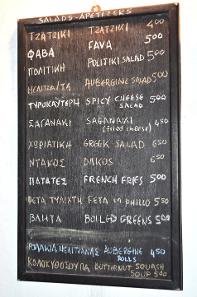 SALADS-APETIZERS
ΤΖΑΤΖΙΚΙ TZATZIKI 400
ΦΑΒΑ FAVA 500
ΠΟΛΙΤΙΚΗ POLITIKI SALAD 500
AUBERGINE SALAD 500
ΤΥΡΟΚΑΥΤΕΡΗ SPICY CHEESE SALAD 500
ΣΑΓΑΝΑΚΙ SAGANAKI 450
(fried cheese)
ΧΩΡΙΑΤΙΚΗ GREEK SALAD 650
ΝΤΑΚΟΣ 600
ΠΑΤΑΤΕΣ FRENCH FRIES 500
ΦΕΤΑ FETA PHILLO 550
ΒΛΗΤΑ BOILED GREENS 500
AUBERGINE ROLLS 450
ΚΟΛΟΚΥΘΟΣΟΥΠΑ BUTTERNUT SQUASH SOUP 500